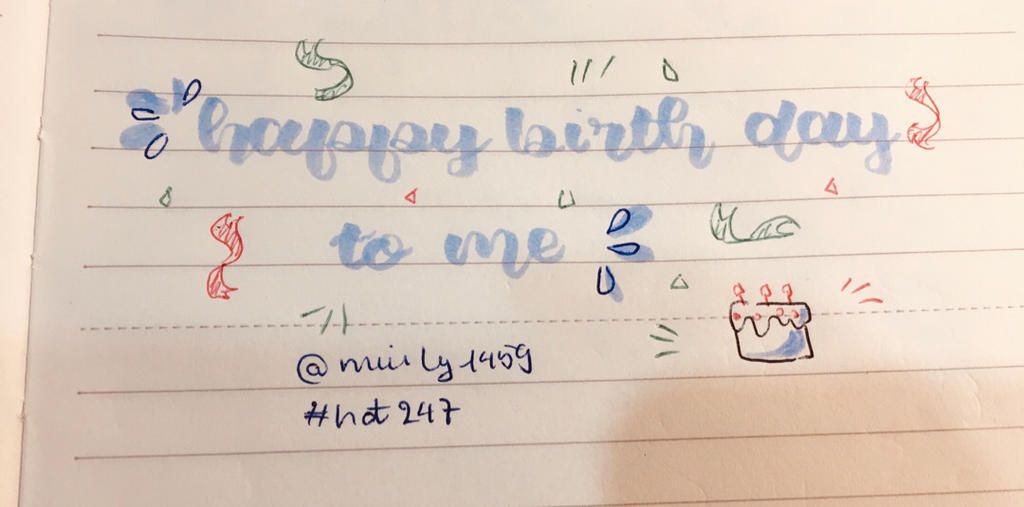 happy birth day
to me
@muily1459
#hot247